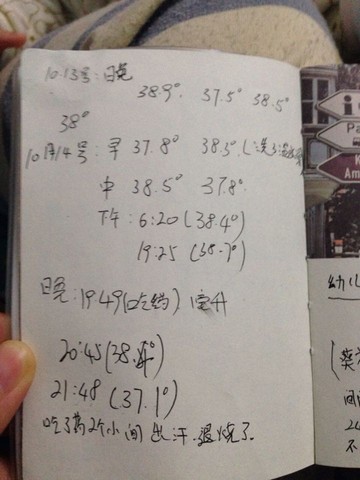 10.13号:晚
38.9° 37.5° 38.5°
38°
10月14号:早 37.8° 38.3°
中 38.5° 37.8°
下午:6:20(38.4°)
19:25(38.7°)
晚:19:49(吃药)
20:45(38.
21:48(37.1°)
吃了药2个小 出汗.退烧了.
幼儿
不